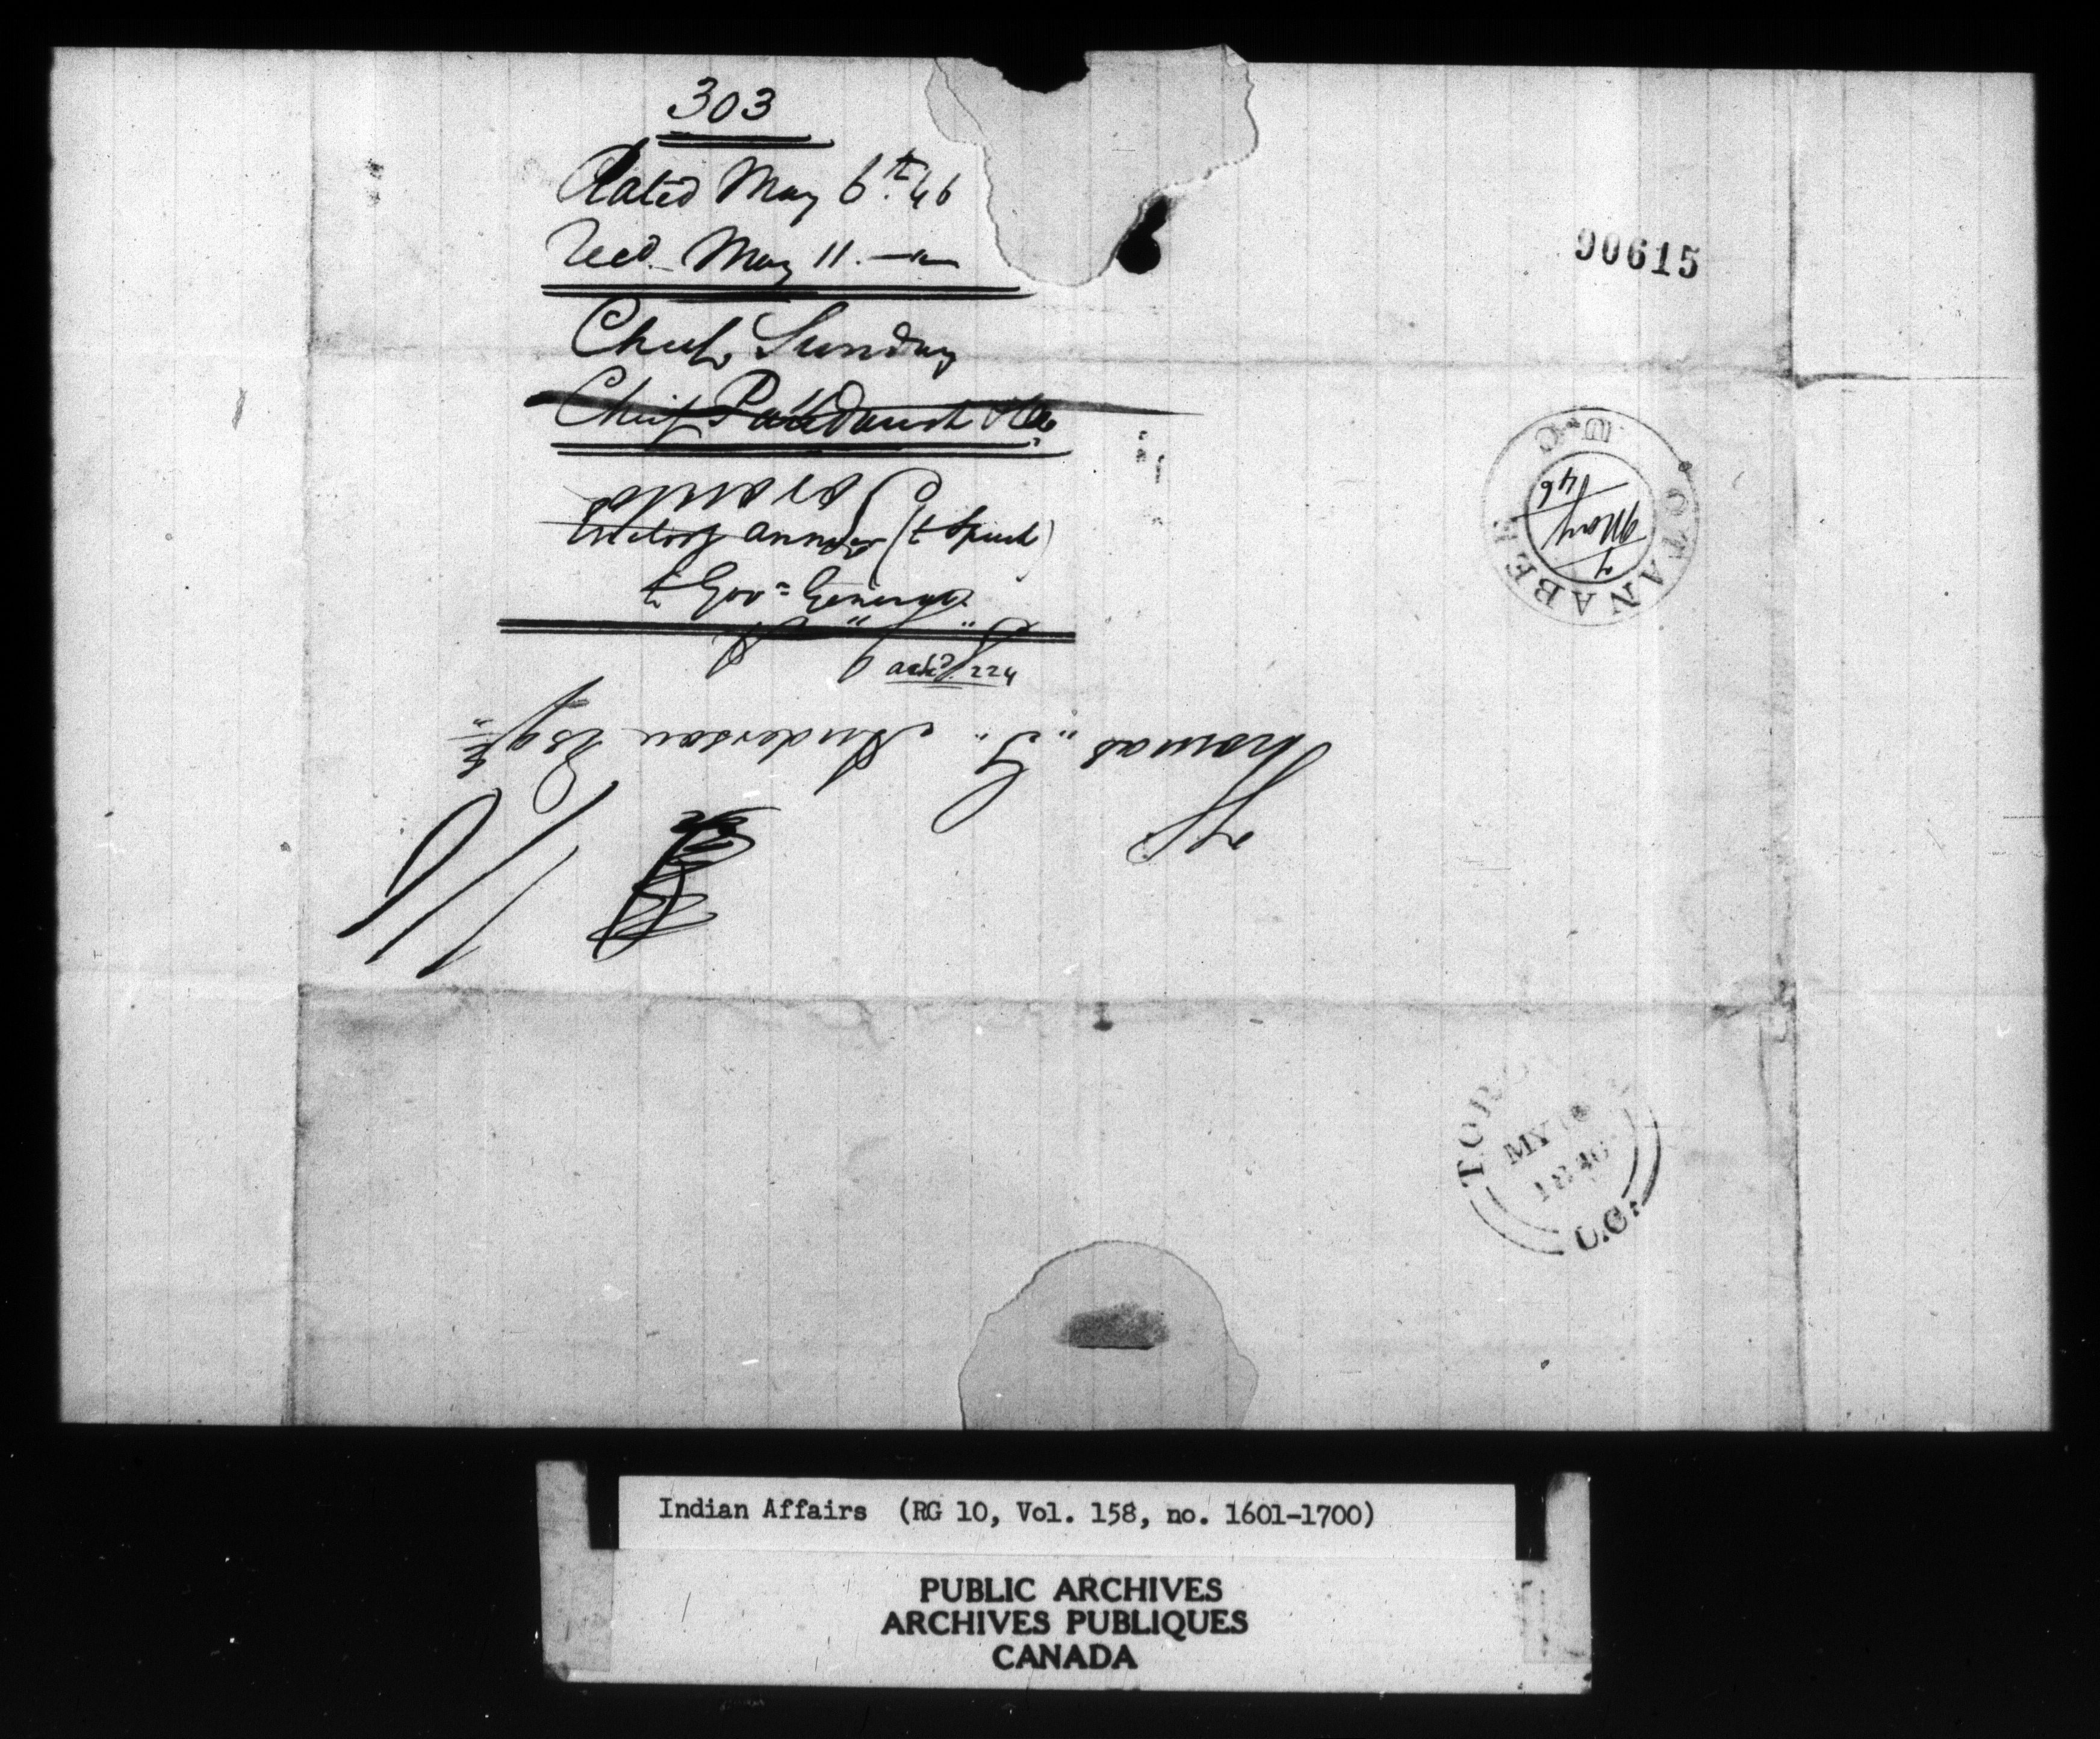 303
Dated May 6th 46
Recd. May 11. —"—
Chief Sunday
Chief Paudaush &c
answer (to Speech)
to Govr General
ackd 224
Toronto
Thomas "G" Anderson Esqr
90615
OTANABEE U.C
7 May 46
TORO
MY 10
1846
U.C.
Indian Affairs (RG 10, Vol. 158, no. 1601-1700)
PUBLIC ARCHIVES
ARCHIVES PUBLIQUES
CANADA